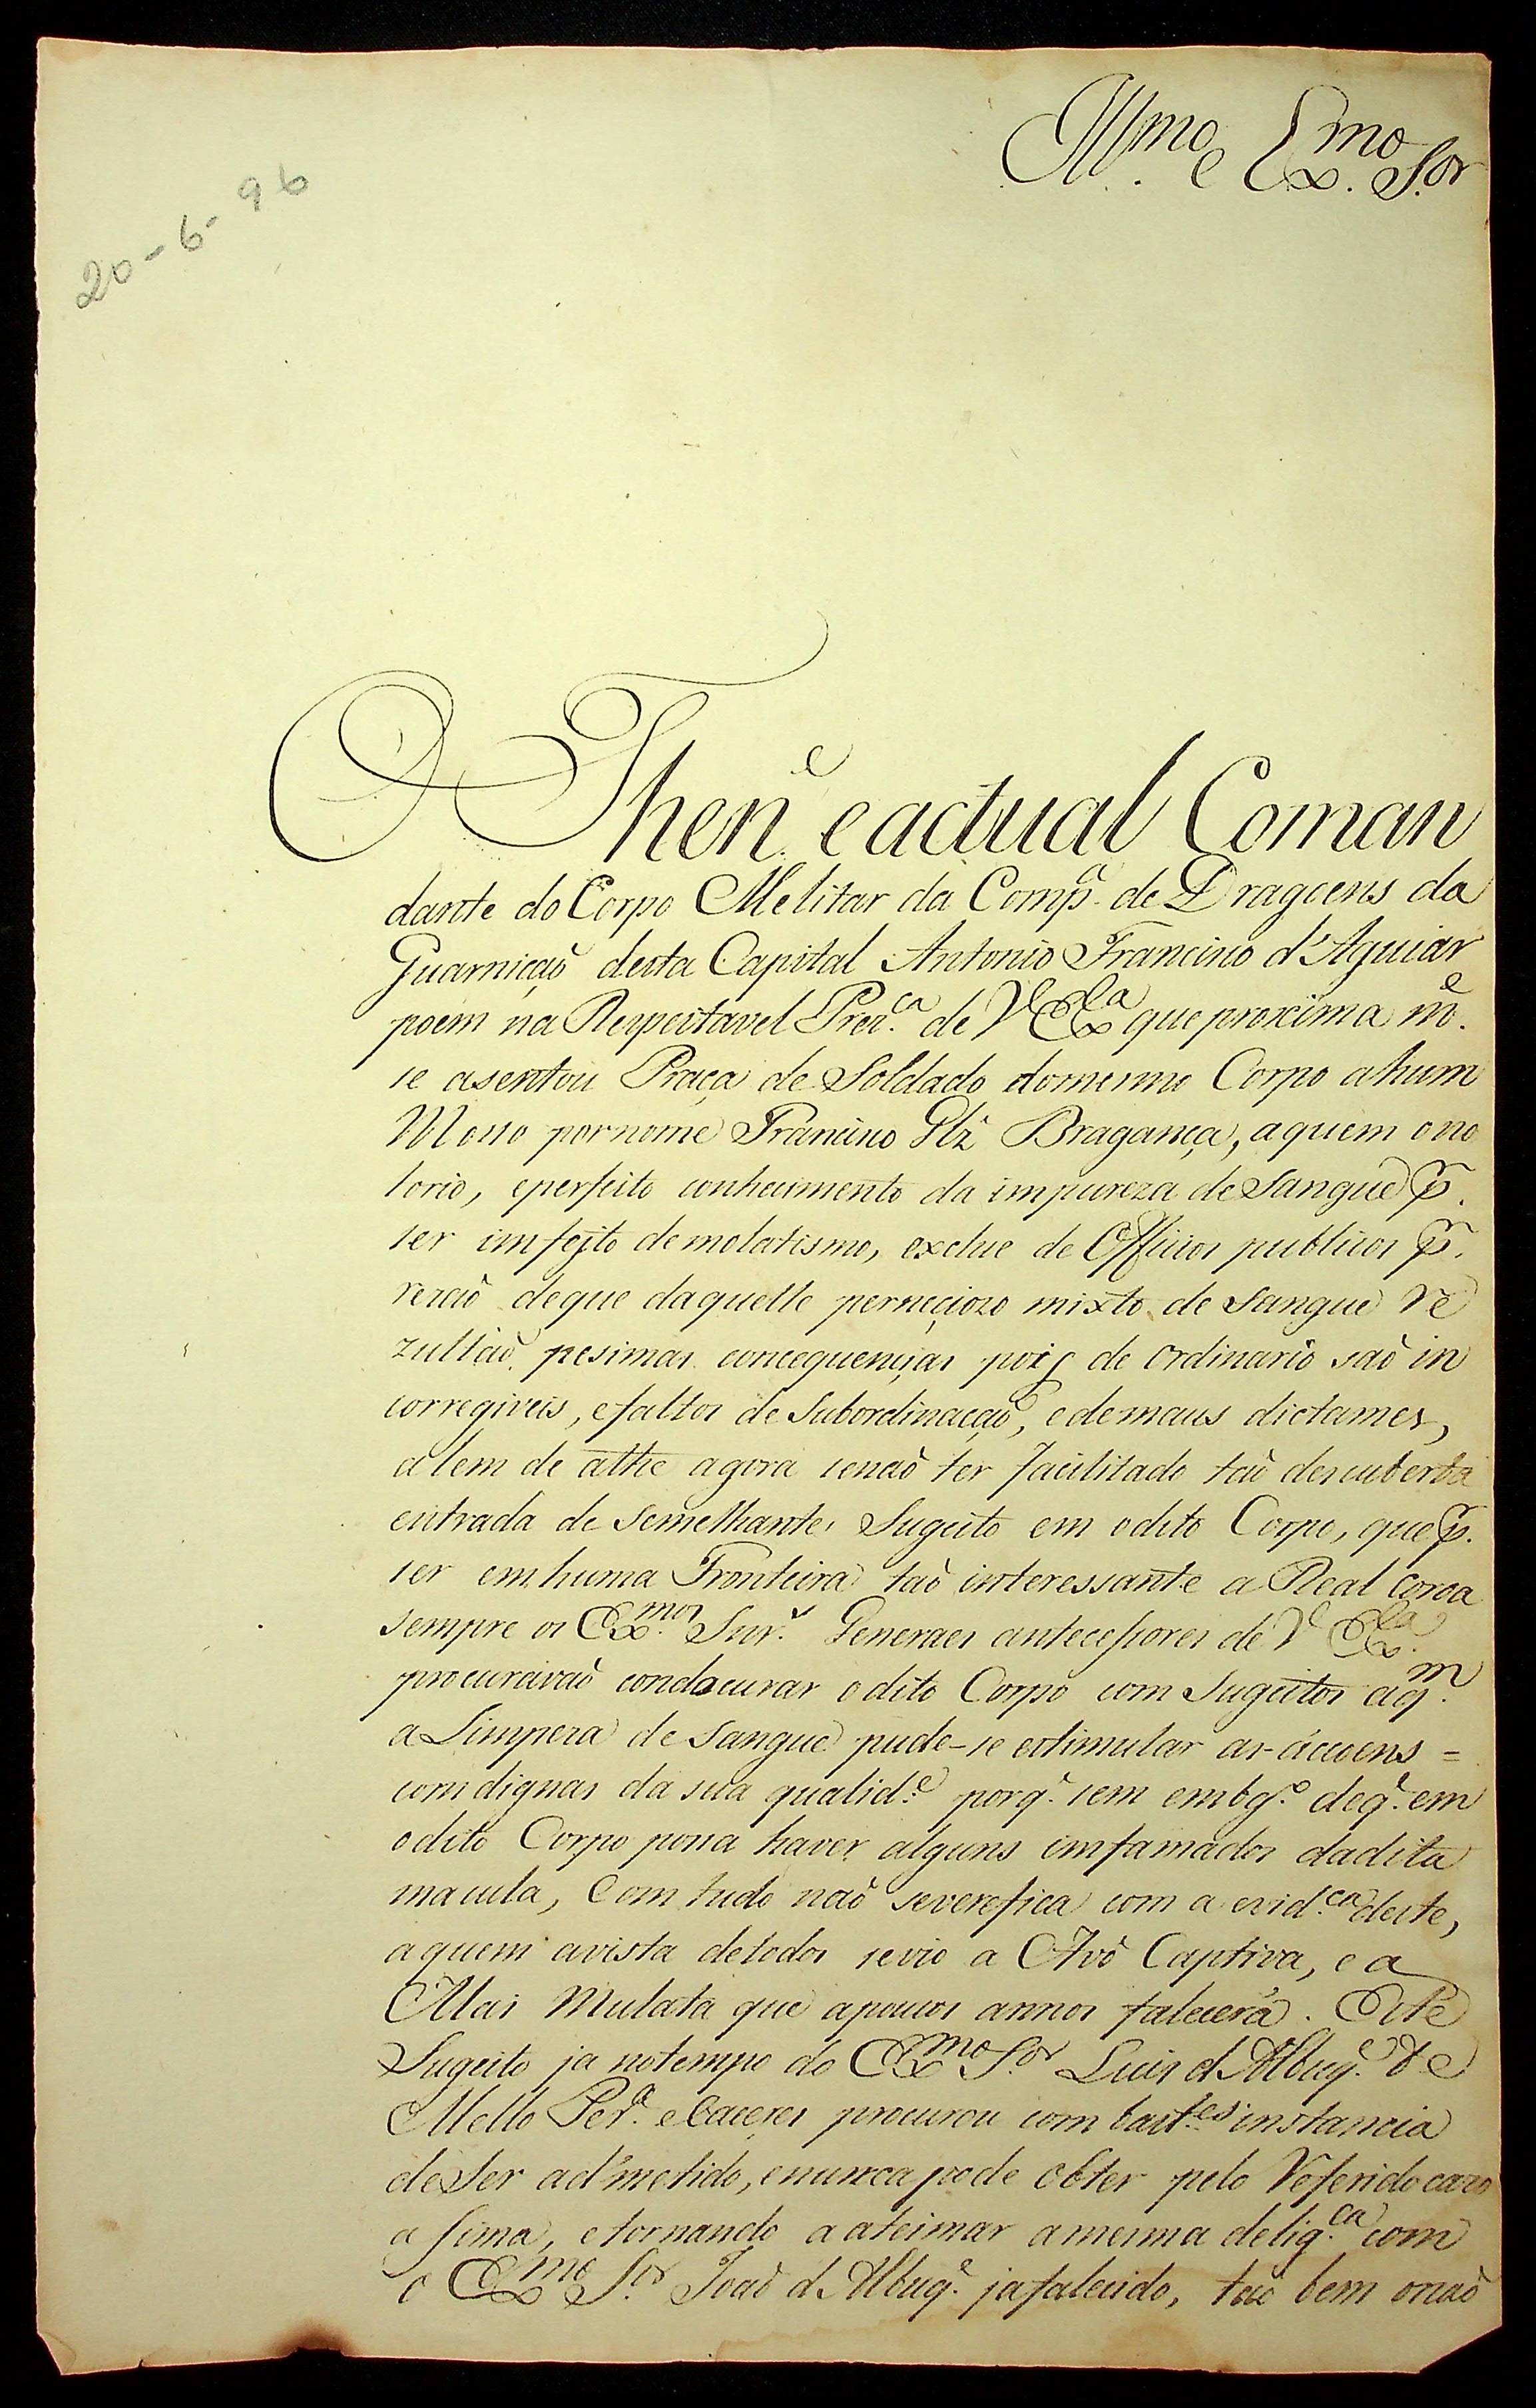 Ill.mo e Ex.mo S.or
20-6-96
O Then.e e actual Coman
dante do Corpo Melitar da Comp.a de Dragoens da
Guarniçaõ desta Capital Antonio Francisco d'Aguiar
poem na Respeitavel Prez.ca de V Ex.la que proxima m.e
se asentou Praça de Soldado do mesmo Corpo a hum
Mosso por nome Francisco Glz Bragança, a quem o no
torio, e perfeito conhecimento da impureza de Sangue p.r
ser imfejto de molatismo, exclue de Officios publicos p.r
rezaõ de que daquelle perneçiozo mixto de Sangue re
zultaõ pesimas concequençias pois de Ordinario saõ in
corregiveis, e faltos de Subordinaçaõ, e de maus dictames,
alem de athe agora senaõ ter facilitado taõ descuberta
entrada de Semelhante Sugeito em o dito Corpo, que p.r
ser em huma Fronteira taõ interessante a Real Coroa
sempre os Ex.mos Snr.s Generaes antecessores de V Ex.la
procuraraõ condecurar o dito Corpo com Sugeitos a q.m
a Limpeza de Sangue pude-se estimular as-ácuoens =
comdignas da sua qualid.e porq.e sem embg.o de q.e em
o dito Corpo possa haver alguns imfamados da dita
macula, Com tudo naõ severefica com a evid.ca deste,
a quem avista detodos sevio a Avó Captiva, e a
Mai Mulata que apoucos annos falecera. Este
Sugeito ja notempo do Ex.mo S.or Luis d'Albuq.e de
Mello Per.a e Caceres procurou com bast.es instancia
de Ser ad'metido, e nunca pode obter pelo Referido cazo
a sima, e tornando a ateimar a mesma delig.ca com
o Ex.mo S.or Joaõ d'Albuq.e ja falecido, taõ bem onaõ